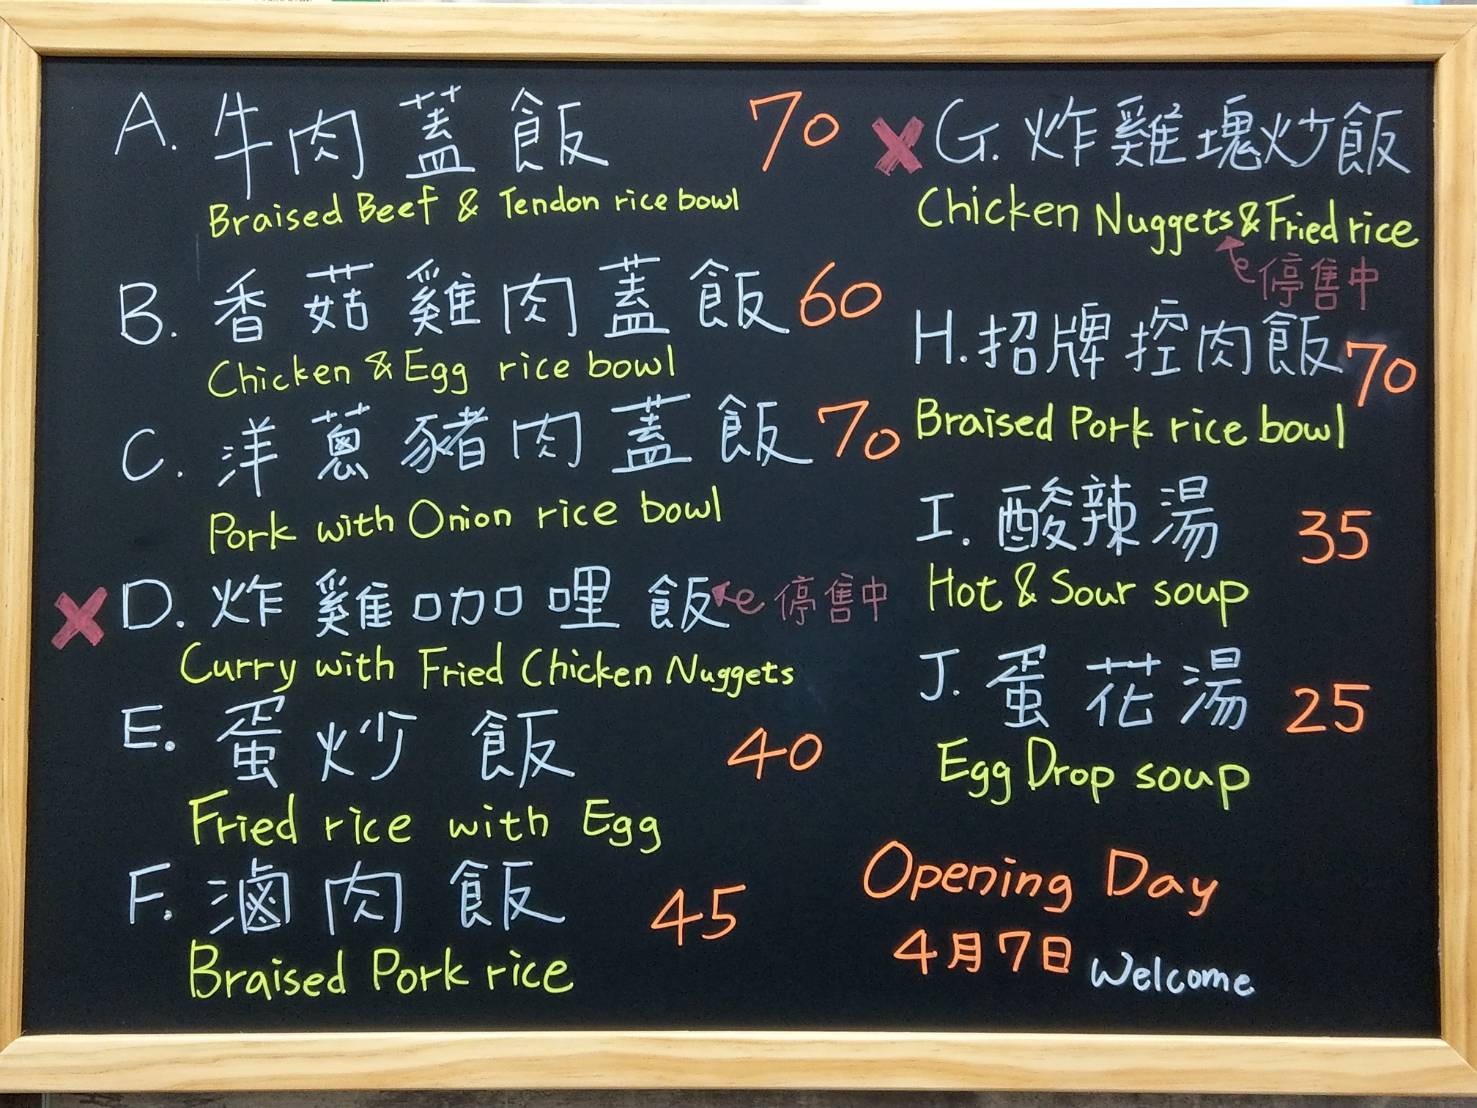 A. 牛肉蓋飯 70
Braised Beef & Tendon rice bowl
B. 香菇雞肉蓋飯 60
Chicken & Egg rice bowl
C. 洋蔥豬肉蓋飯 70
Pork with Onion rice bowl
X D. 炸雞咖哩飯 停售中
Curry with Fried Chicken Nuggets
E. 蛋炒飯 40
Fried rice with Egg
F. 滷肉飯 45
Braised Pork rice
X G. 炸雞塊炒飯
Chicken Nuggets & Fried rice
停售中
H. 招牌控肉飯 70
Braised Pork rice bowl
I. 酸辣湯 35
Hot & Sour soup
J. 蛋花湯 25
Egg Drop soup
Opening Day
4月7日 Welcome